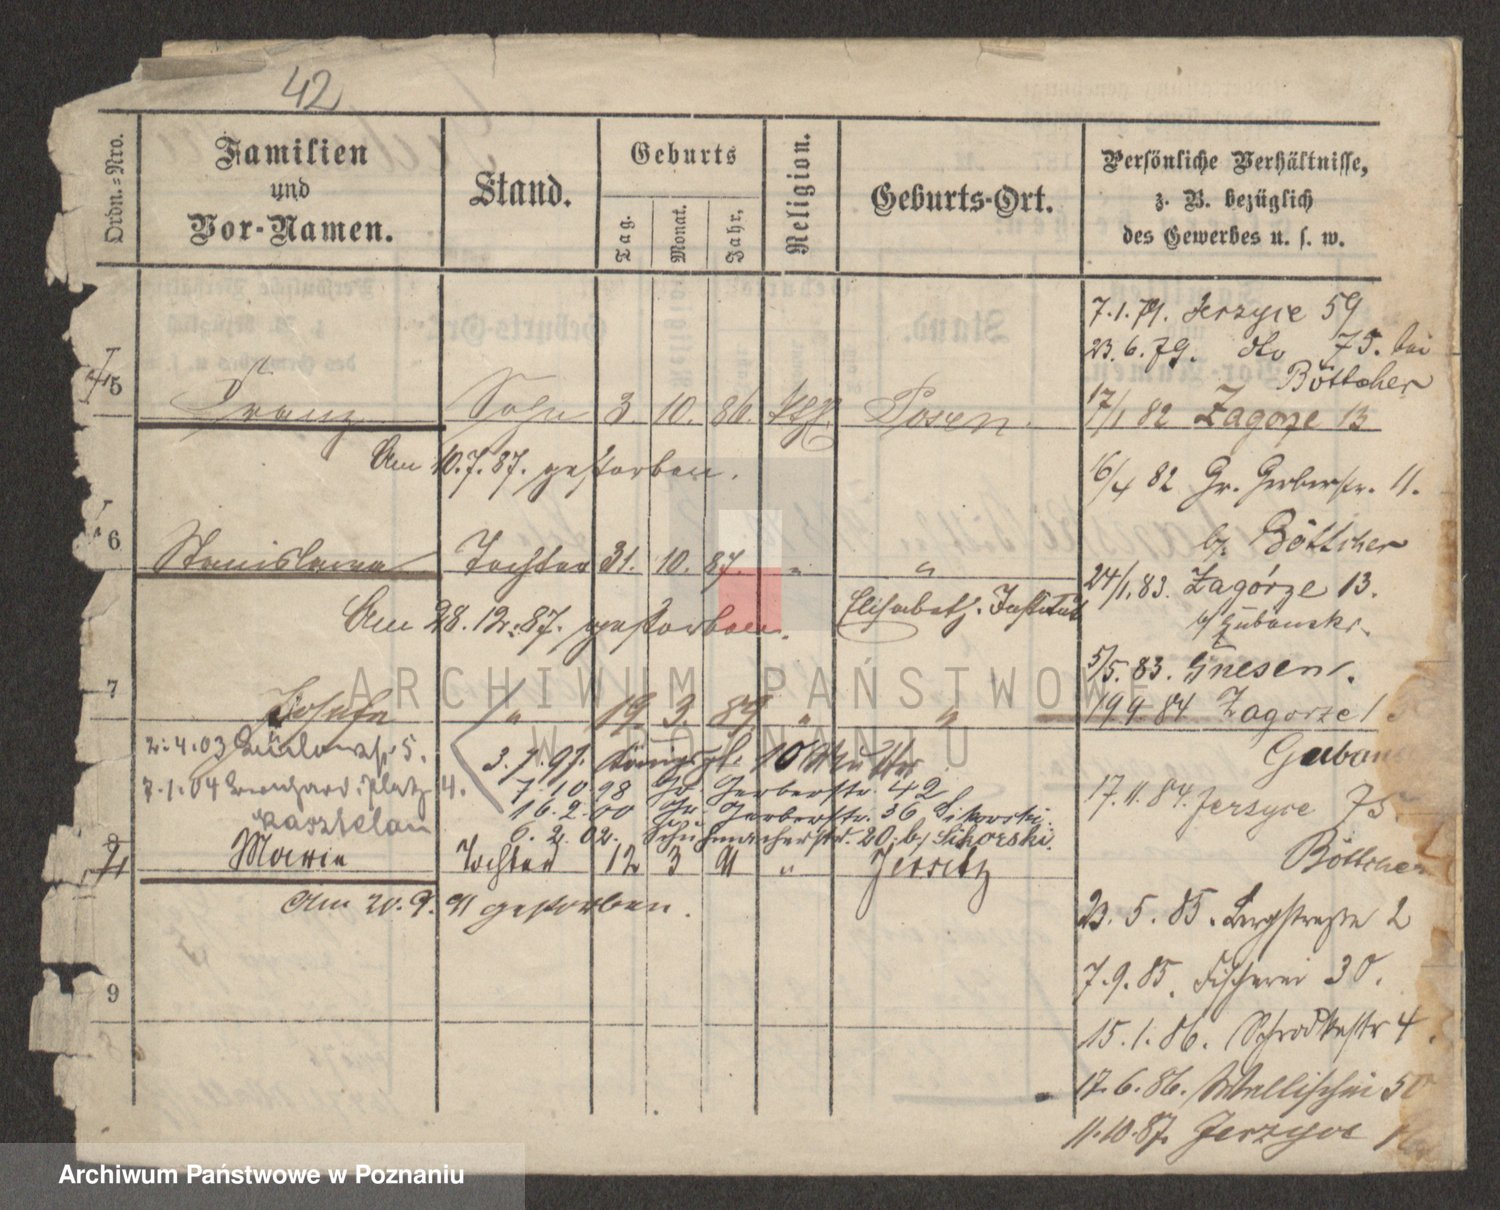 42
Ordn.-Nro.
Familien
und
Vor-Namen.
Stand.
Geburts
Tag.
Monat.
Jahr.
Religion.
Geburts-Ort.
Persönliche Verhältnisse,
z. B. bezüglich
des Gewerbes u. s. w.
7.1.79. Jerzyce 59
23.6.79. do 75. bei
Böttcher
17/1 82 Zagorze 13
5 Franz Sohn 3. 10. 86. Posen.
Am 10.7.87. gestorben.
16/4 82 Gr. Gerberstr. 11.
b/ Böttcher
6 Stanislawa Tochter 31. 10. 87. " "
24/1.83. Zagórze 13.
Elisabeth. Institut
Am 28.12.87. gestorben.
5/5.83. Gnesen.
7 Josefa " 19 3. 89 " "
19.9.84 Zagorze 1.
2.4.03 5.
3.7.97. Königspl. 10 Mutter
7.1.04 Bernhard. Platz 4.
7.10 98 Gr. Gerberstr. 42
Kasztelan
16.2.00 Gr. Gerberstr. 36 Sikorski.
6.2.02. Schuhmacherstr. 20. b/ Sikorski.
17.11.84. Jerzyce 75
Böttcher
8 Marie Tochter 12 3 91 " Jersitz
Am 20.9.91 gestorben.
23.5.85. Bergstrasse 2
7.9.85. Fischerei 30.
9
15.1.86. Schrodkastr 4.
17.6.86. Wallischei 50
11.10.87. Jerzyce
ARCHIWUM PAŃSTWOWE
W POZNANIU
Archiwum Państwowe w Poznaniu